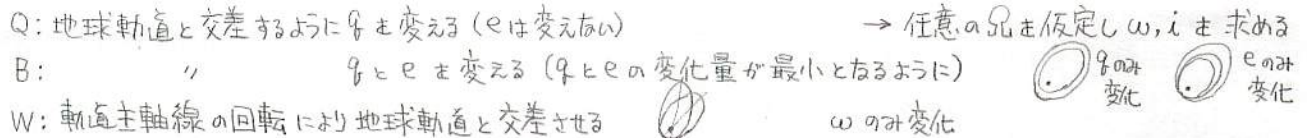 Q: 地球軌道と交差するようにqを変える (eは変えない) → 任意のΩを仮定しω, iを求める
B: 〃 qとeを変える (qとeの変化量が最小となるように) qのみ変化 eのみ変化
W: 軌道主軸線の回転により地球軌道と交差させる ωのみ変化